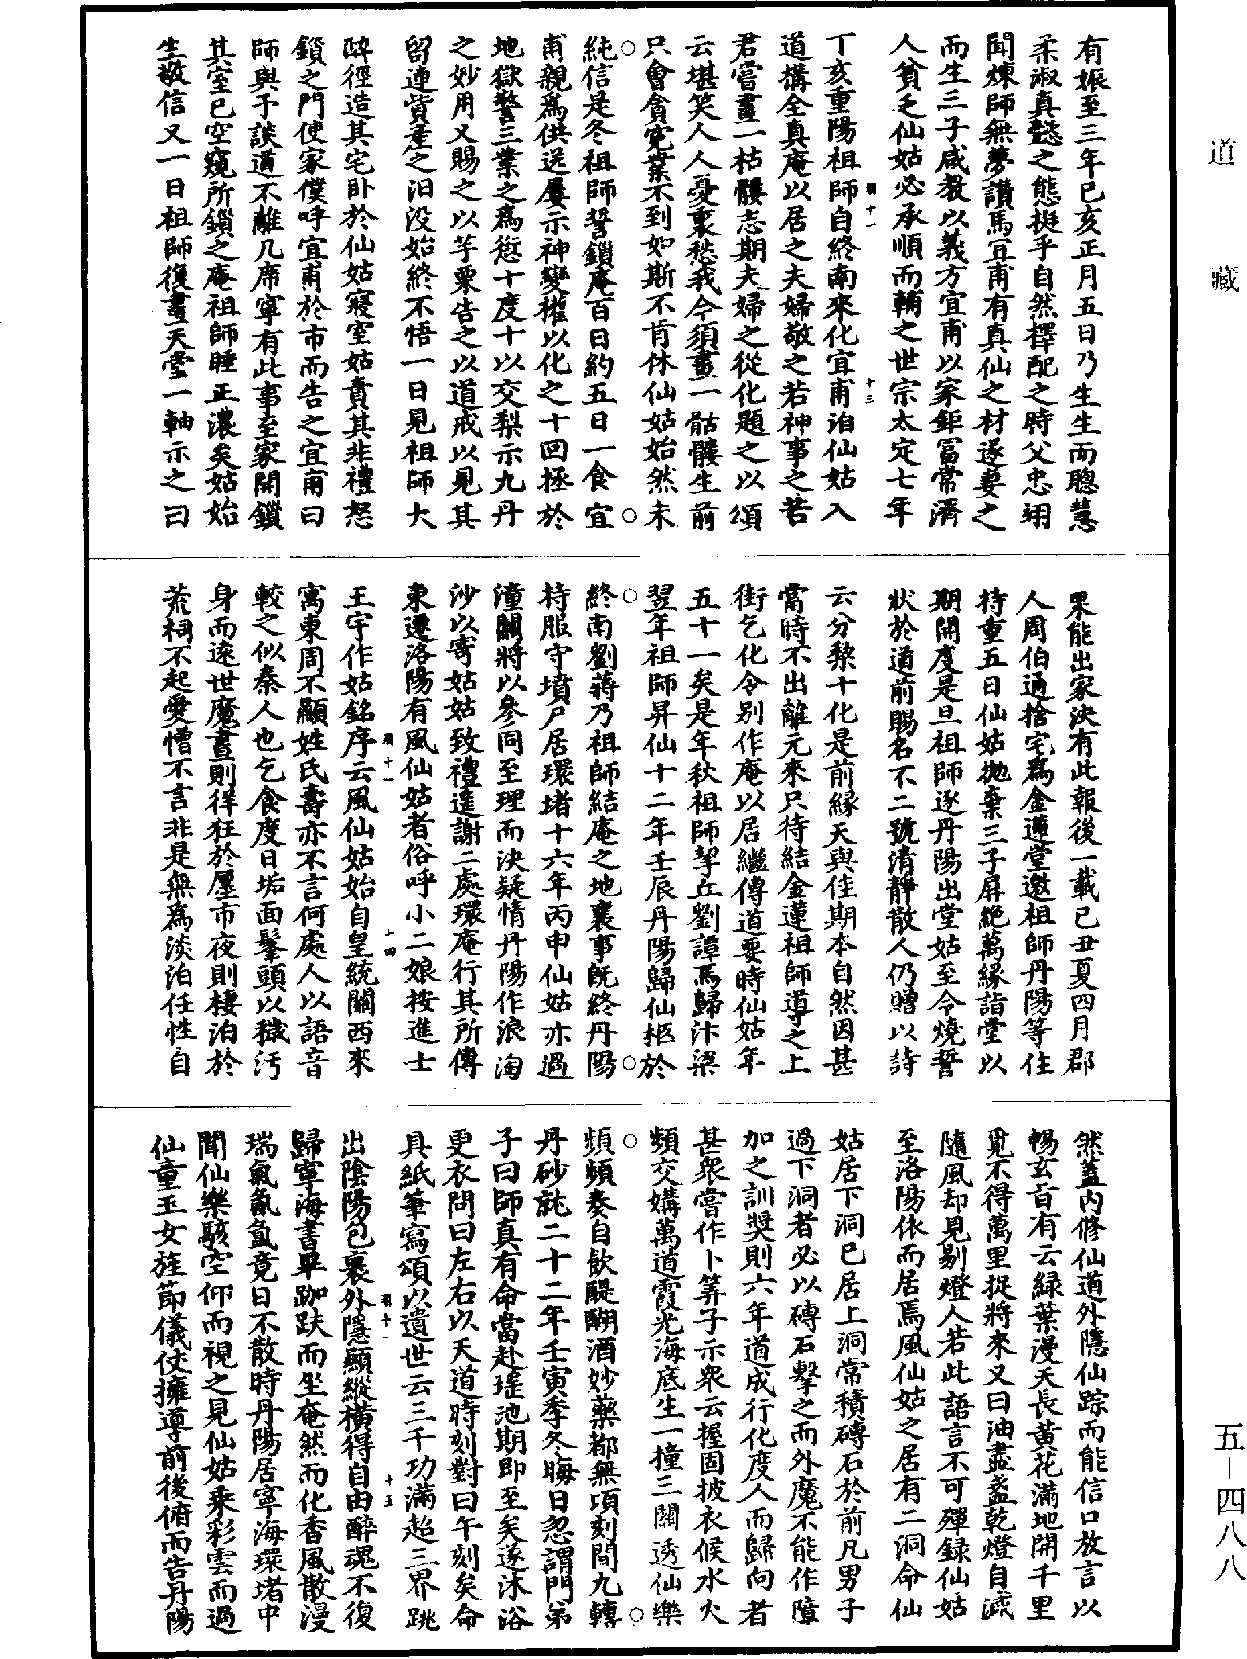 道藏
有娠至三年己亥正月五日乃生生而聰慧
柔淑真懿之態挺乎自然擇配之時父忠翊
聞煉師無夢讚馬宜甫有真仙之材遂妻之
而生三子咸教以義方宜甫以家鉅冨常濟
人貧乏仙姑必承順而輔之世宗太定七年
丁亥重陽祖師自終南來化宜甫洎仙姑入
道搆全真庵以居之夫婦敬之若神事之若
君嘗畫一枯髏志期夫婦之從化題之以頌
云堪笑人人憂裏愁我今須畫一骷髏生前
只會貪寃業不到如斯不肯休仙姑始然未
純信是冬祖師誓鎖庵百日約五日一食宜
甫親爲供送屢示神變權以化之十回拯於
地獄警三業之爲愆十度十以交梨示九丹
之妙用又賜之以芋栗告之以道戒以見其
留連貲產之汩没始終不悟一日見祖師大
醉徑造其宅卧於仙姑寢室姑責其非禮怒
鎖之門使家僕呼宜甫於市而告之宜甫曰
師與予談道不離几席寧有此事至家開鎖
其室已空窺所鎖之庵祖師睡正濃矣姑始
生敬信又一日祖師復畫天堂一軸示之曰
果能出家決有此報後一載己丑夏四月郡
人周伯通捨宅爲金蓮堂邀祖師丹陽等住
持重五日仙姑拋棄三子屏絶萬緣詣堂以
期開度是旦祖師逐丹陽出堂姑至今燒誓
狀於道前賜名不二號清靜散人仍贈以詩
云分黎十化是前緣天與佳期本自然因甚
當時不出離元來只待結金蓮祖師導之上
街乞化令别作庵以居繼傳道要時仙姑年
五十一矣是年秋祖師挈丘劉譚馬歸汴梁
翌年祖師昇仙十二年壬辰丹陽歸仙柩於
終南劉蔣乃祖師結庵之地襄事旣終丹陽
持服守墳户居環堵十六年丙申仙姑亦過
潼關將以參同至理而決疑情丹陽作浪淘
沙以寄姑姑致禮遥謝二處環庵行其所傳
東遷洛陽有風仙姑者俗呼小二娘按進士
王宇作姑銘序云風仙姑始自皇統關西來
寓東周不顯姓氏壽亦不言何處人以語音
較之似秦人也乞食度日垢面鬅頭以穢汚
身而遠世魔晝則徉狂於㕓市夜則棲泊於
荒祠不起愛憎不言非是無爲淡泊任性自
然蓋内修仙道外隱仙踪而能信口放言以
暢玄旨有云緑葉漫天長黄花滿地開千里
覓不得萬里捉將來又曰油盡盞乾燈自滅
隨風却見剔燈人若此語言不可殫録仙姑
至洛陽依而居焉風仙姑之居有二洞命仙
姑居下洞己居上洞常積磚石於前凡男子
過下洞者必以磚石擊之而外魔不能作障
加之訓獎則六年道成行化度人而歸向者
甚衆嘗作卜筭子示衆云握固披衣候水火
頻交媾萬道霞光海底生一撞三關透仙樂
頻頻奏自飲醍醐酒妙藥都無頃刻間九轉
丹砂就二十二年壬寅季冬晦日忽謂門弟
子曰師真有命當赴瑶池期即至矣遂沐浴
更衣問曰左右以天道時刻對曰午刻矣命
具紙筆寫頌以遺世云三千功滿超三界跳
出陰陽包裹外隱顯縱横得自由醉魂不復
歸寧海書畢跏趺而坐奄然而化香風散漫
瑞氣氤氳竟日不散時丹陽居寧海環堵中
聞仙樂駭空仰而視之見仙姑乘彩雲而過
仙童玉女旌節儀仗擁導前後俯而告丹陽
五-四八八